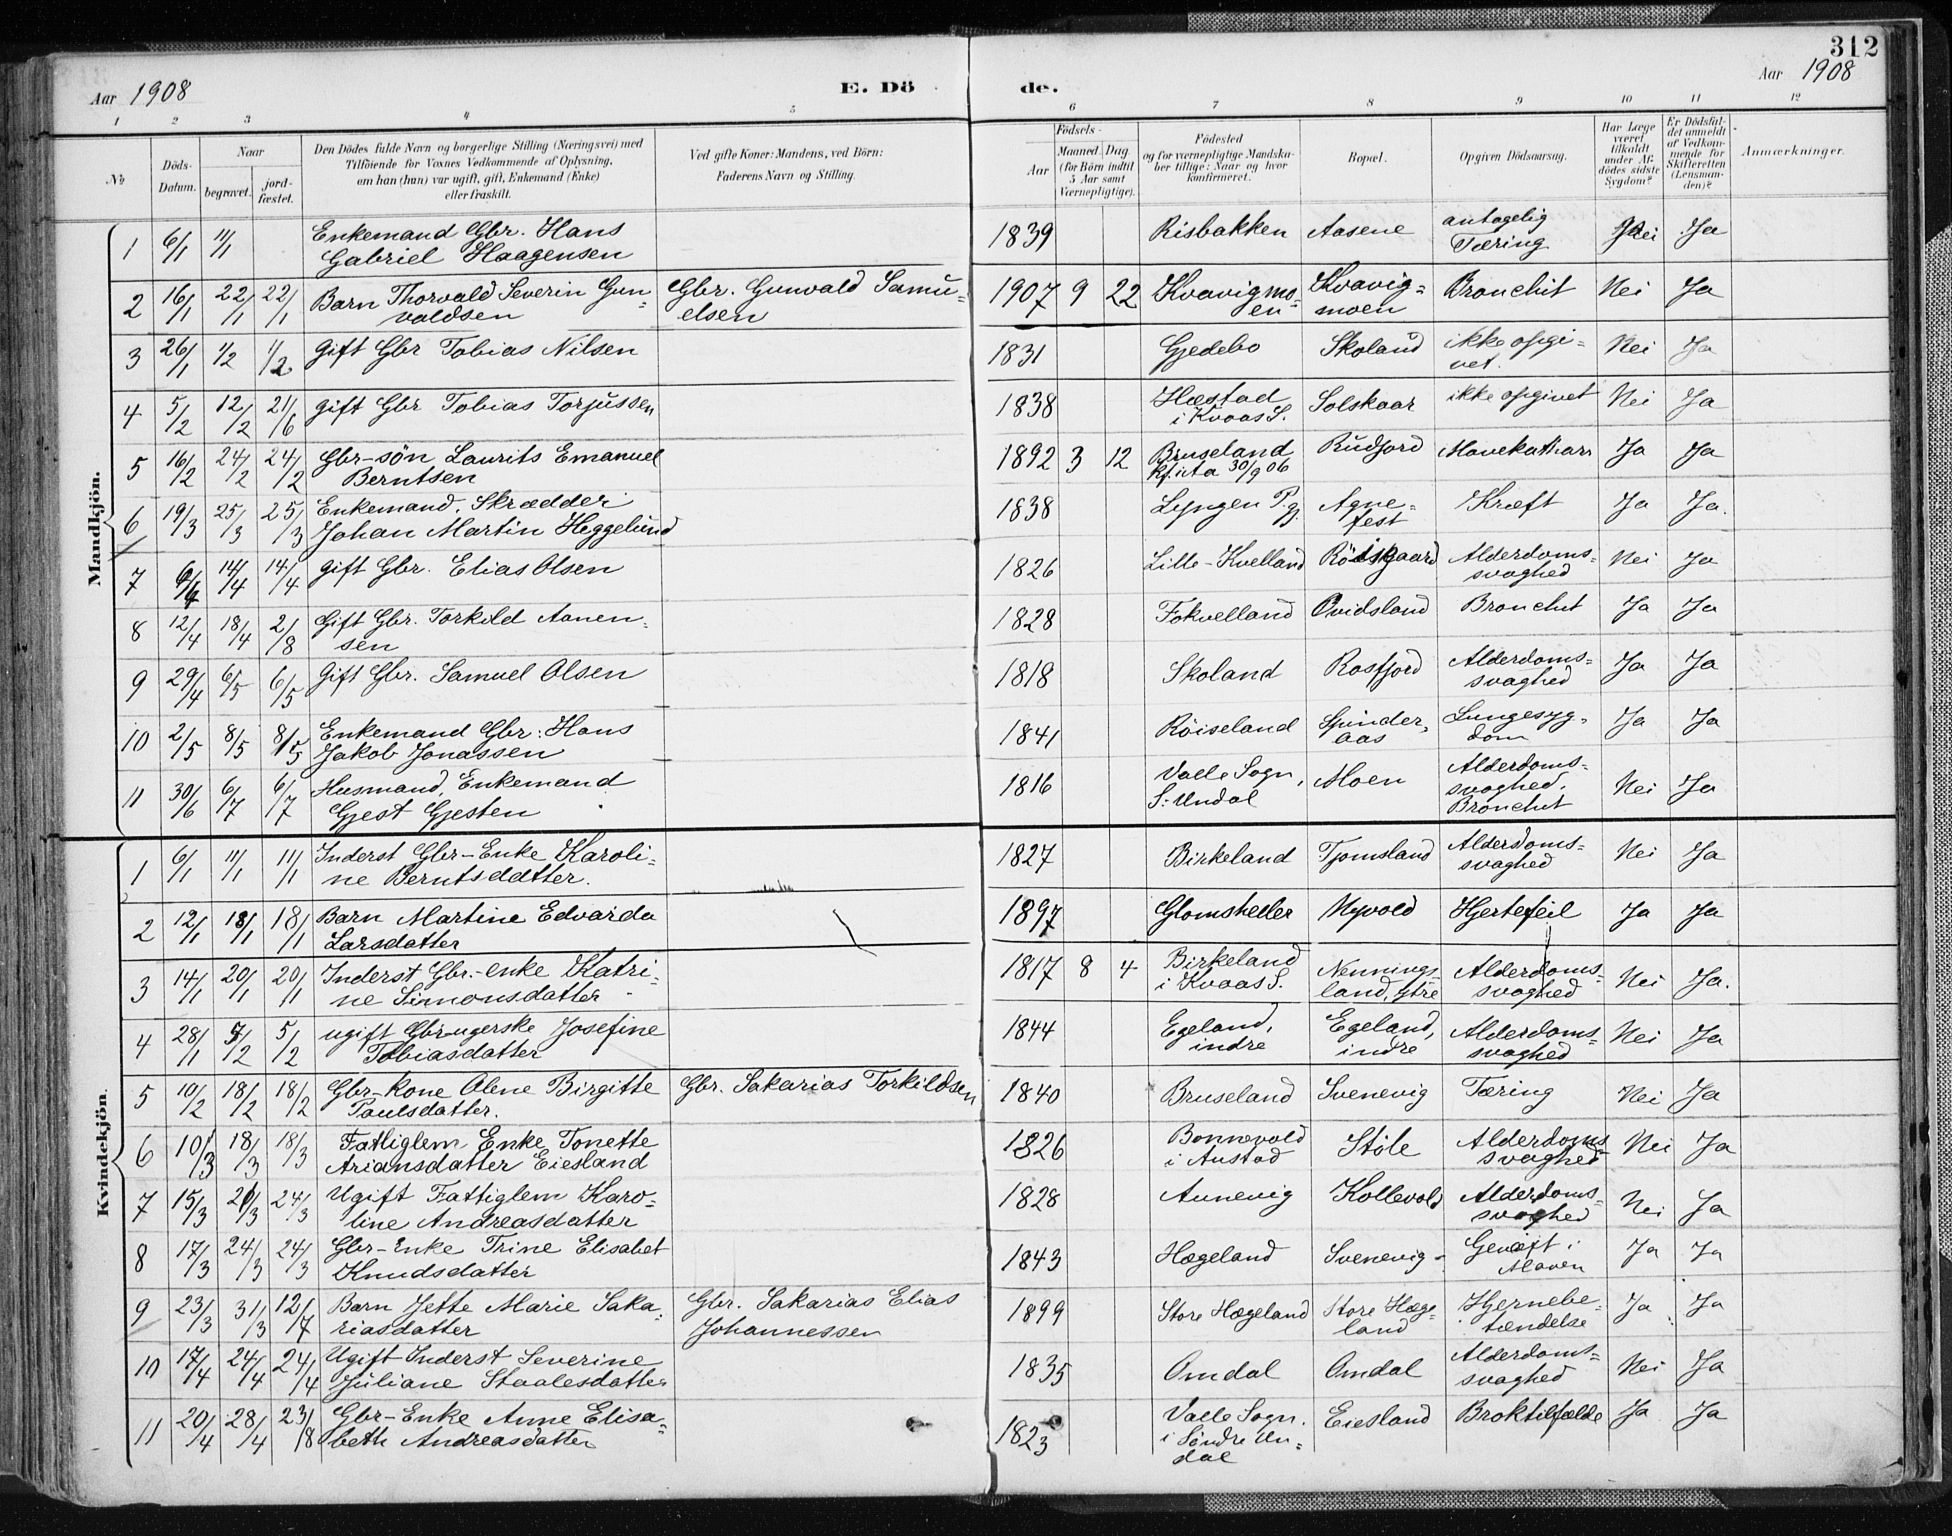 312
Aar 1908
E. Dö
de.
Aar 1908
1 2 3 4 5 6 7 8 9 10 11 12
No
Döds-Datum.
Naar
begravet.
jord-fæstet.
Den Dödes fulde Navn og borgerlige Stilling (Næringsvei) med
Tilföiende for Voxnes Vedkommende af Oplysning,
om han (hun) var ugift, gift, Enkemand (Enke)
eller fraskilt.
Ved gifte Koner: Mandens, ved Börn:
Faderens Navn og Stilling.
Födsels-
Aar
Maaned. Dag.
(for Börn indtil
5 Aar samt
Værnepligtige).
Födested
og for værnepligtige Mandska-
ber tillige: Naar og hvor
konfirmeret.
Bopæl.
Opgiven Dödsaarsag.
Har Læge
været
tilkaldt
under Af-
dödes sidste
Sygdom?
Er Dödsfal-
det anmeldt
af Vedkom-
mende for
Skifteretten
(Lensman-
den)?
Anmærkninger.
Mandkjön.
1 6/1 11/1 Enkemand Gbr. Hans
Gabriel Haagensen
1839 Risbakken Aasene antagelig
Tæring Nei Ja
2 16/1 22/1 22/1 Barn Thorvald Severin Gun-
valdsen
Gbr. Gunvald Samu-
elsen
1907 9 22 Kvavigmo-
en
Kvavig-
moen
Bronchit Nei Ja
3 26/1 1/2 1/2 gift Gbr Tobias Nilsen
1831 Gjedebo Skoland ikke opgi-
vet. Nei Ja
4 5/2 12/2 21/6 gift Gbr Tobias Torjussen
1838 Hæstad
i Kvaas S. Solskaar ikke opgivet Nei Ja
5 16/2 24/2 24/2 Gbr-søn Laurits Emanuel
Berntsen
1892 3 12 Bruseland
30/9 06 Rudjord Mavekathar Ja Ja
6 19/3 25/3 25/3 Enkemand, Skrædder
Johan Martin Heggelund
1838 Lyngen Pg. Agne-
fest Kræft Ja Ja.
7 6/4 14/4 14/4 gift Gbr. Elias Olsen
1826 Lille-Kvelland Alderdoms-
svaghed Nei Ja
8 12/4 18/4 2/8 Gift Gbr. Torkild Aanen-
sen
1828 Fokvelland Ovidsland Bronchit Ja Ja
9 29/4 6/5 6/5 Gift Gbr. Samuel Olsen
1818 Skoland Rosfjord Alderdoms-
svaghed Ja Ja
10 2/5 8/5 8/5 Enkemand Gbr: Hans
Jakob Jonassen
1841 Röiseland Spinder-
aas Lungesyg-
dom Ja Ja
11 30/6 6/7 6/7 Husmand, Enkemand
Gjest Gjesten
1816 Valle Sogn,
S: Undal Moen Alderdoms-
svaghed,
Bronchit Nei Ja
Kvindekjön.
1 6/1 11/1 11/1 Inderst Gbr-Enke Karoli-
ne Berntsdatter.
1827 Birkeland Tjomsland Alderdoms-
svaghed Nei Ja
2 12/1 18/1 18/1 Barn Martine Edvarda
Larsdatter
1897 Glomsheller Nyvold Hjertefeil Ja Ja
3 14/1 20/1 20/1 Inderst Gbr.-enke Katri-
ne Simonsdatter
1817 8 4 Birkeland
i Kvaas S. Nennings-
land, Ytre Alderdoms-
svaghed Nei Ja.
4 28/1 5/2 5/2 ugift Gbrugerske Josefine
Tobiasdatter
1844 Egeland,
indre Egeland,
indre Alderdoms-
svaghed Nei Ja
5 10/2 18/2 18/2 Gbr-Kone Olene Birgitte
Paulsdatter.
Gbr. Sakarias Torkildsen
1840 Bruseland Svenevig Tæring Nei Ja
6 10/3 18/3 18/3 Fattiglem Enke Tonette
Ariansdatter Eiesland
1826 Bonnevold
i Austad Støle Alderdoms
svaghed Nei Ja
7 15/3 21/3 24/3 Ugift Fattiglem Karo-
line Andreasdatter
1828 Aunevig Kollevold Alderdoms-
svaghed Nei Ja
8 17/3 24/3 24/3 Gbr-Enke Trine Elisabet
Knudsdatter
1843 Hægeland Svenevig Gevæxt i
Maven Ja Ja
9 23/3 31/3 12/7 Barn Jette Marie Saka-
riasdatter
Gbr. Sakarias Elias
Johannessen
1899 Store Hægeland Store Hæge-
land Hjernebe-
tændelse Ja Ja
10 17/4 24/4 24/4 Ugift Inderst Severine
Juliane Staalesdatter
1835 Omdal Omdal Alderdoms-
svaghed Nei Ja
11 20/4 28/4 23/8 Gbr-Enke Anne Elisa-
beth Andreasdatter
1823 Valle Sogn.
i Søndre Un-
dal Eiesland Broktilfælde Ja Ja